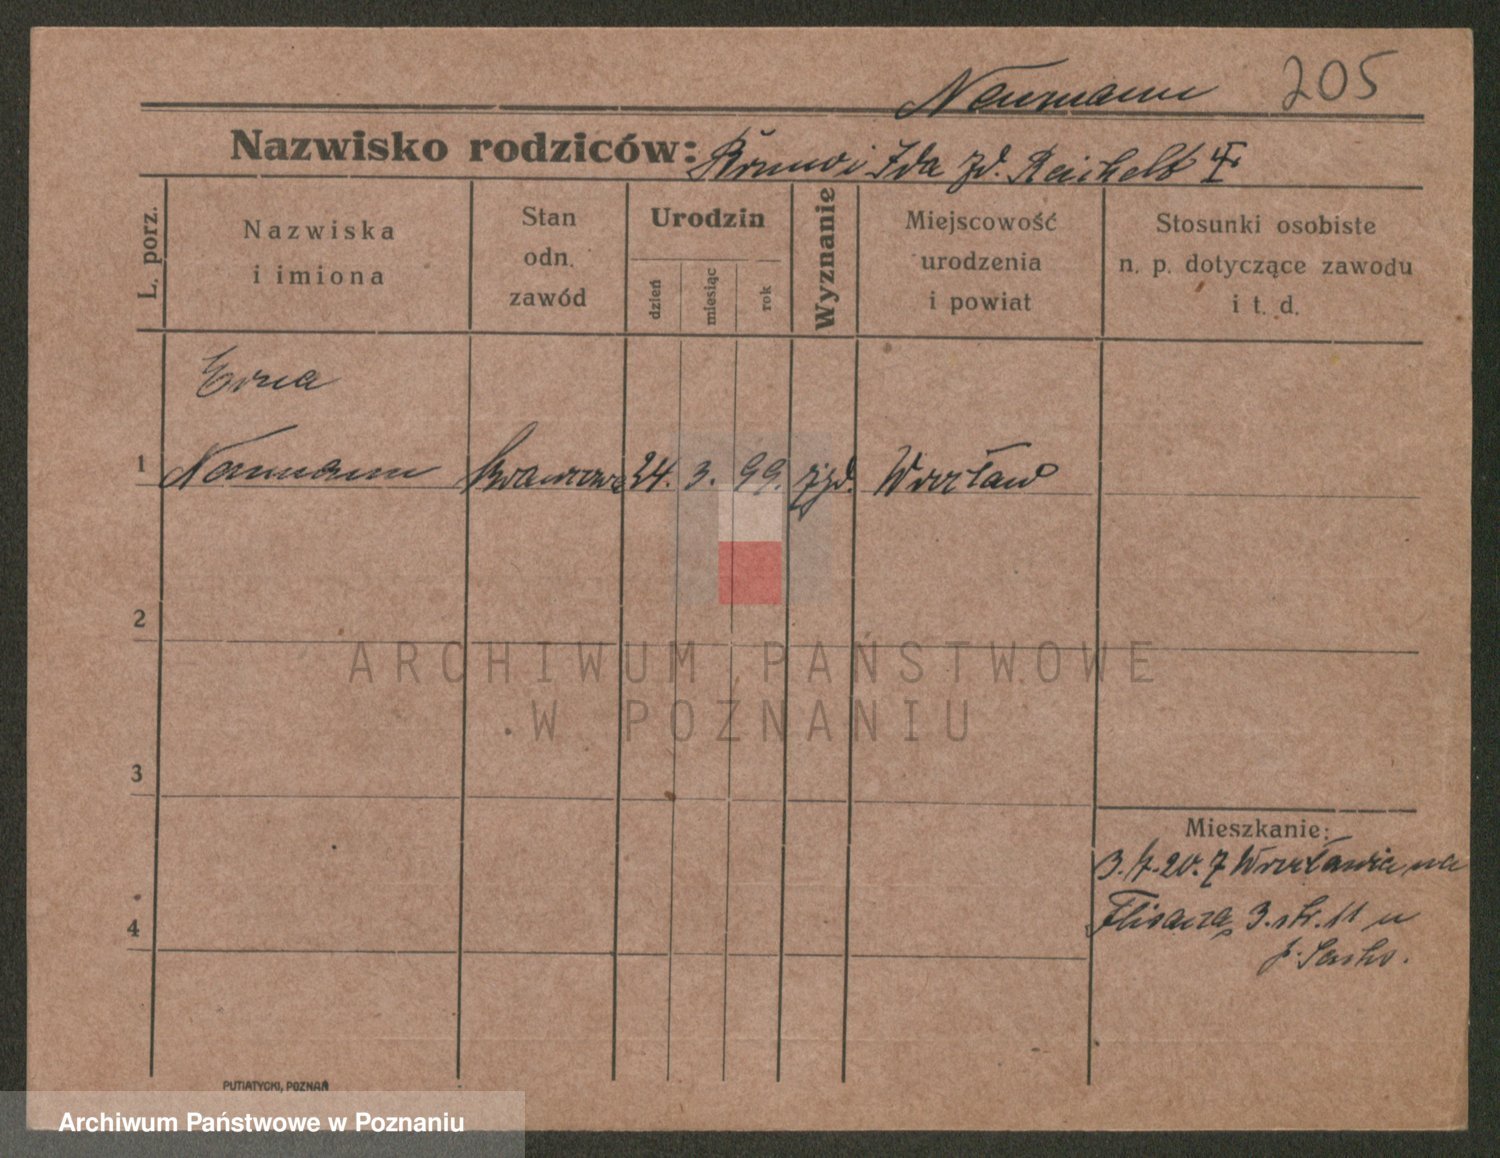 Neumann 205
Nazwisko rodziców: Bruno i Ida żd. Reichelt
L. porz.
Nazwiska
i imiona
Stan
odn.
zawód
Urodzin
dzień
miesiąc
rok
Wyznanie
Miejscowość
urodzenia
i powiat
Stosunki osobiste
n. p. dotyczące zawodu
i t. d.
Erna
1 Neumann 24. 3. 99. żyd. Wrocław
2
3
4
Mieszkanie:
3. 7. 20. z Wrocławia na
3. str. 11 u
PUTIATYCKI, POZNAŃ
ARCHIWUM PAŃSTWOWE
W POZNANIU
Archiwum Państwowe w Poznaniu